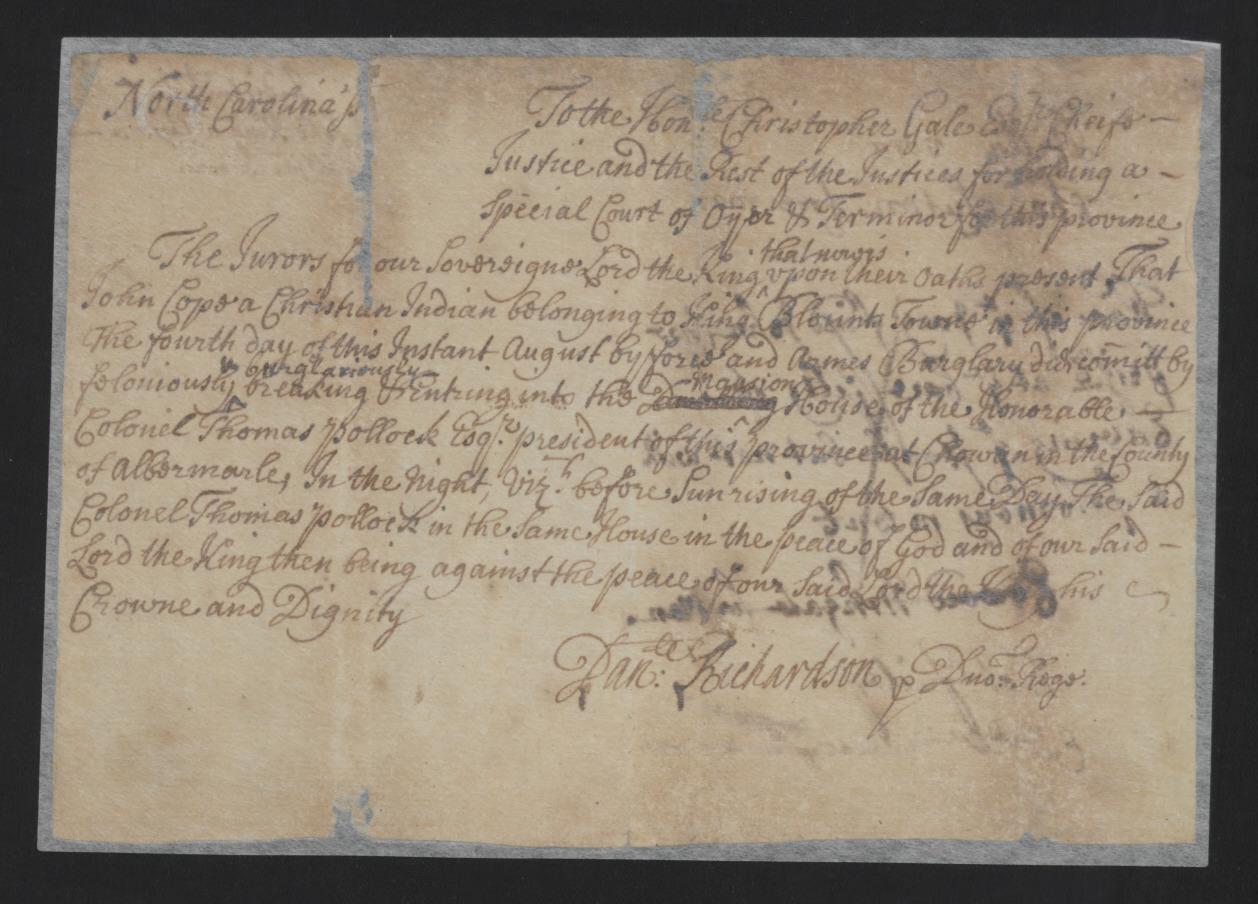 North Carolina ss
To the Honble Christopher Gale Esqr Cheife
Justice and the Rest of the Justices for holding a
Special Court of Oyer & Terminer for this province
The Jurors for our Sovereigne Lord the King that now is upon their Oaths present, That
John Cope a Christian Indian belonging to King Blounts Towne in this province
the fourth day of this Instant August by force and Armes Burglary did comitt by
feloniously & burglariously breaking & Entring into the Mansion House of the Honorable
Colonel Thomas Pollock Esqr. president of this province at Chowan in the County
of Albermarle, In the Night, Vizt. before Sun rising of the Same Day, The Said
Colonel Thomas Pollock in the Same House in the peace of God and of our Said
Lord the King then being against the peace of our Said Lord the King his
Crowne and Dignity
Danll: Richardson p Dno: Rege.